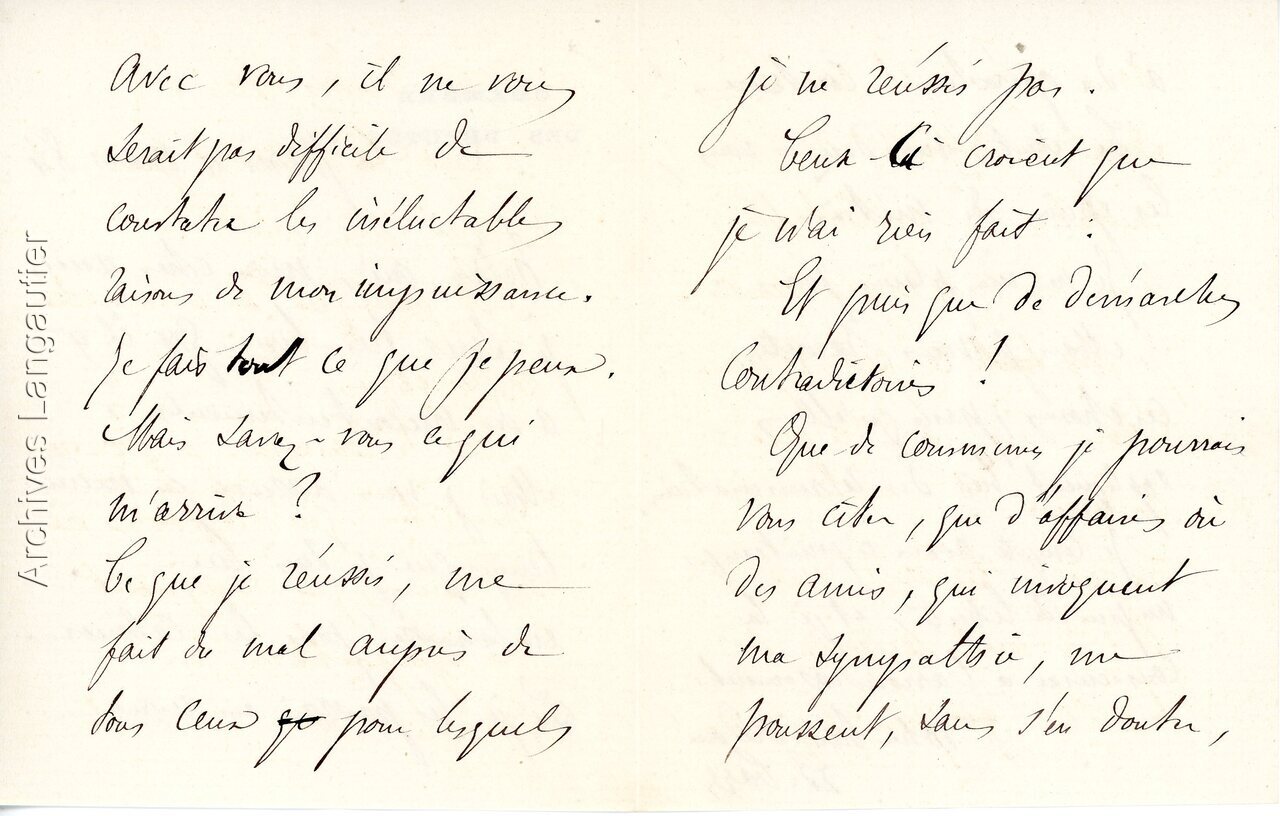 Avec vous, il ne vous
serait pas difficile de
constater les inéluctables
raisons de mon impuissance.
Je fais tout ce que je peux.
Mais savez-vous ce qui
m'arrive ?
Ce que je réussis, me
fait du mal auprès de
tous ceux pour lesquels
je ne réussis pas.
Ceux-là croient que
je n'ai rien fait :
Et puis que de démarches
contradictoires !
Que de communes je pourrais
vous citer, que d'affaires où
des amis, qui invoquent
ma sympathie, me
poussent, sans s'en douter,
Archives Langautier